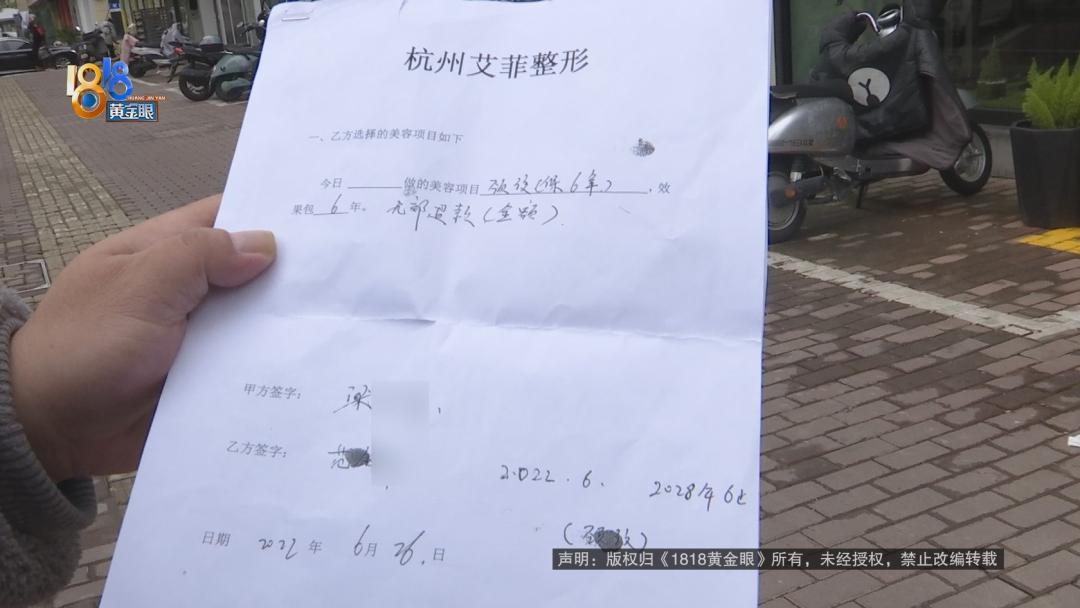 1818
HUANG JIN YAN
黄金眼
杭州艾菲整形
一、乙方选择的美容项目如下
今日 做的美容项目 颈纹(保6年) ,效
果包 6 年。 无 款(全额).
甲方签字: 梁
乙方签字: 范
2022.6. 2028年6止
日期 2022 年 6 月 26. 日
(颈纹)
声明：版权归《1818黄金眼》所有，未经授权，禁止改编转载